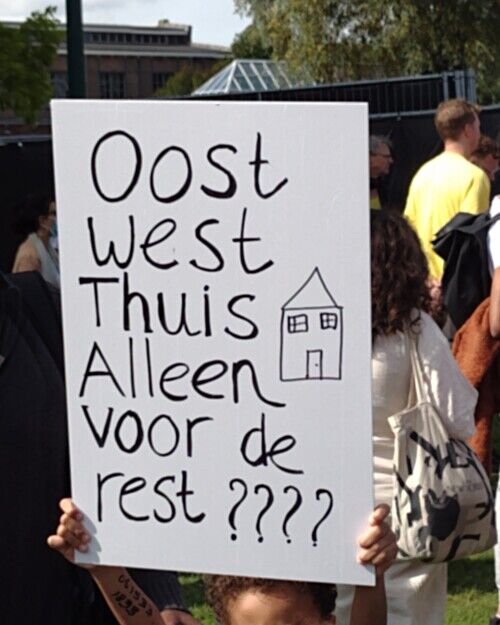 Oost
west
Thuis
Alleen
voor de
rest ????